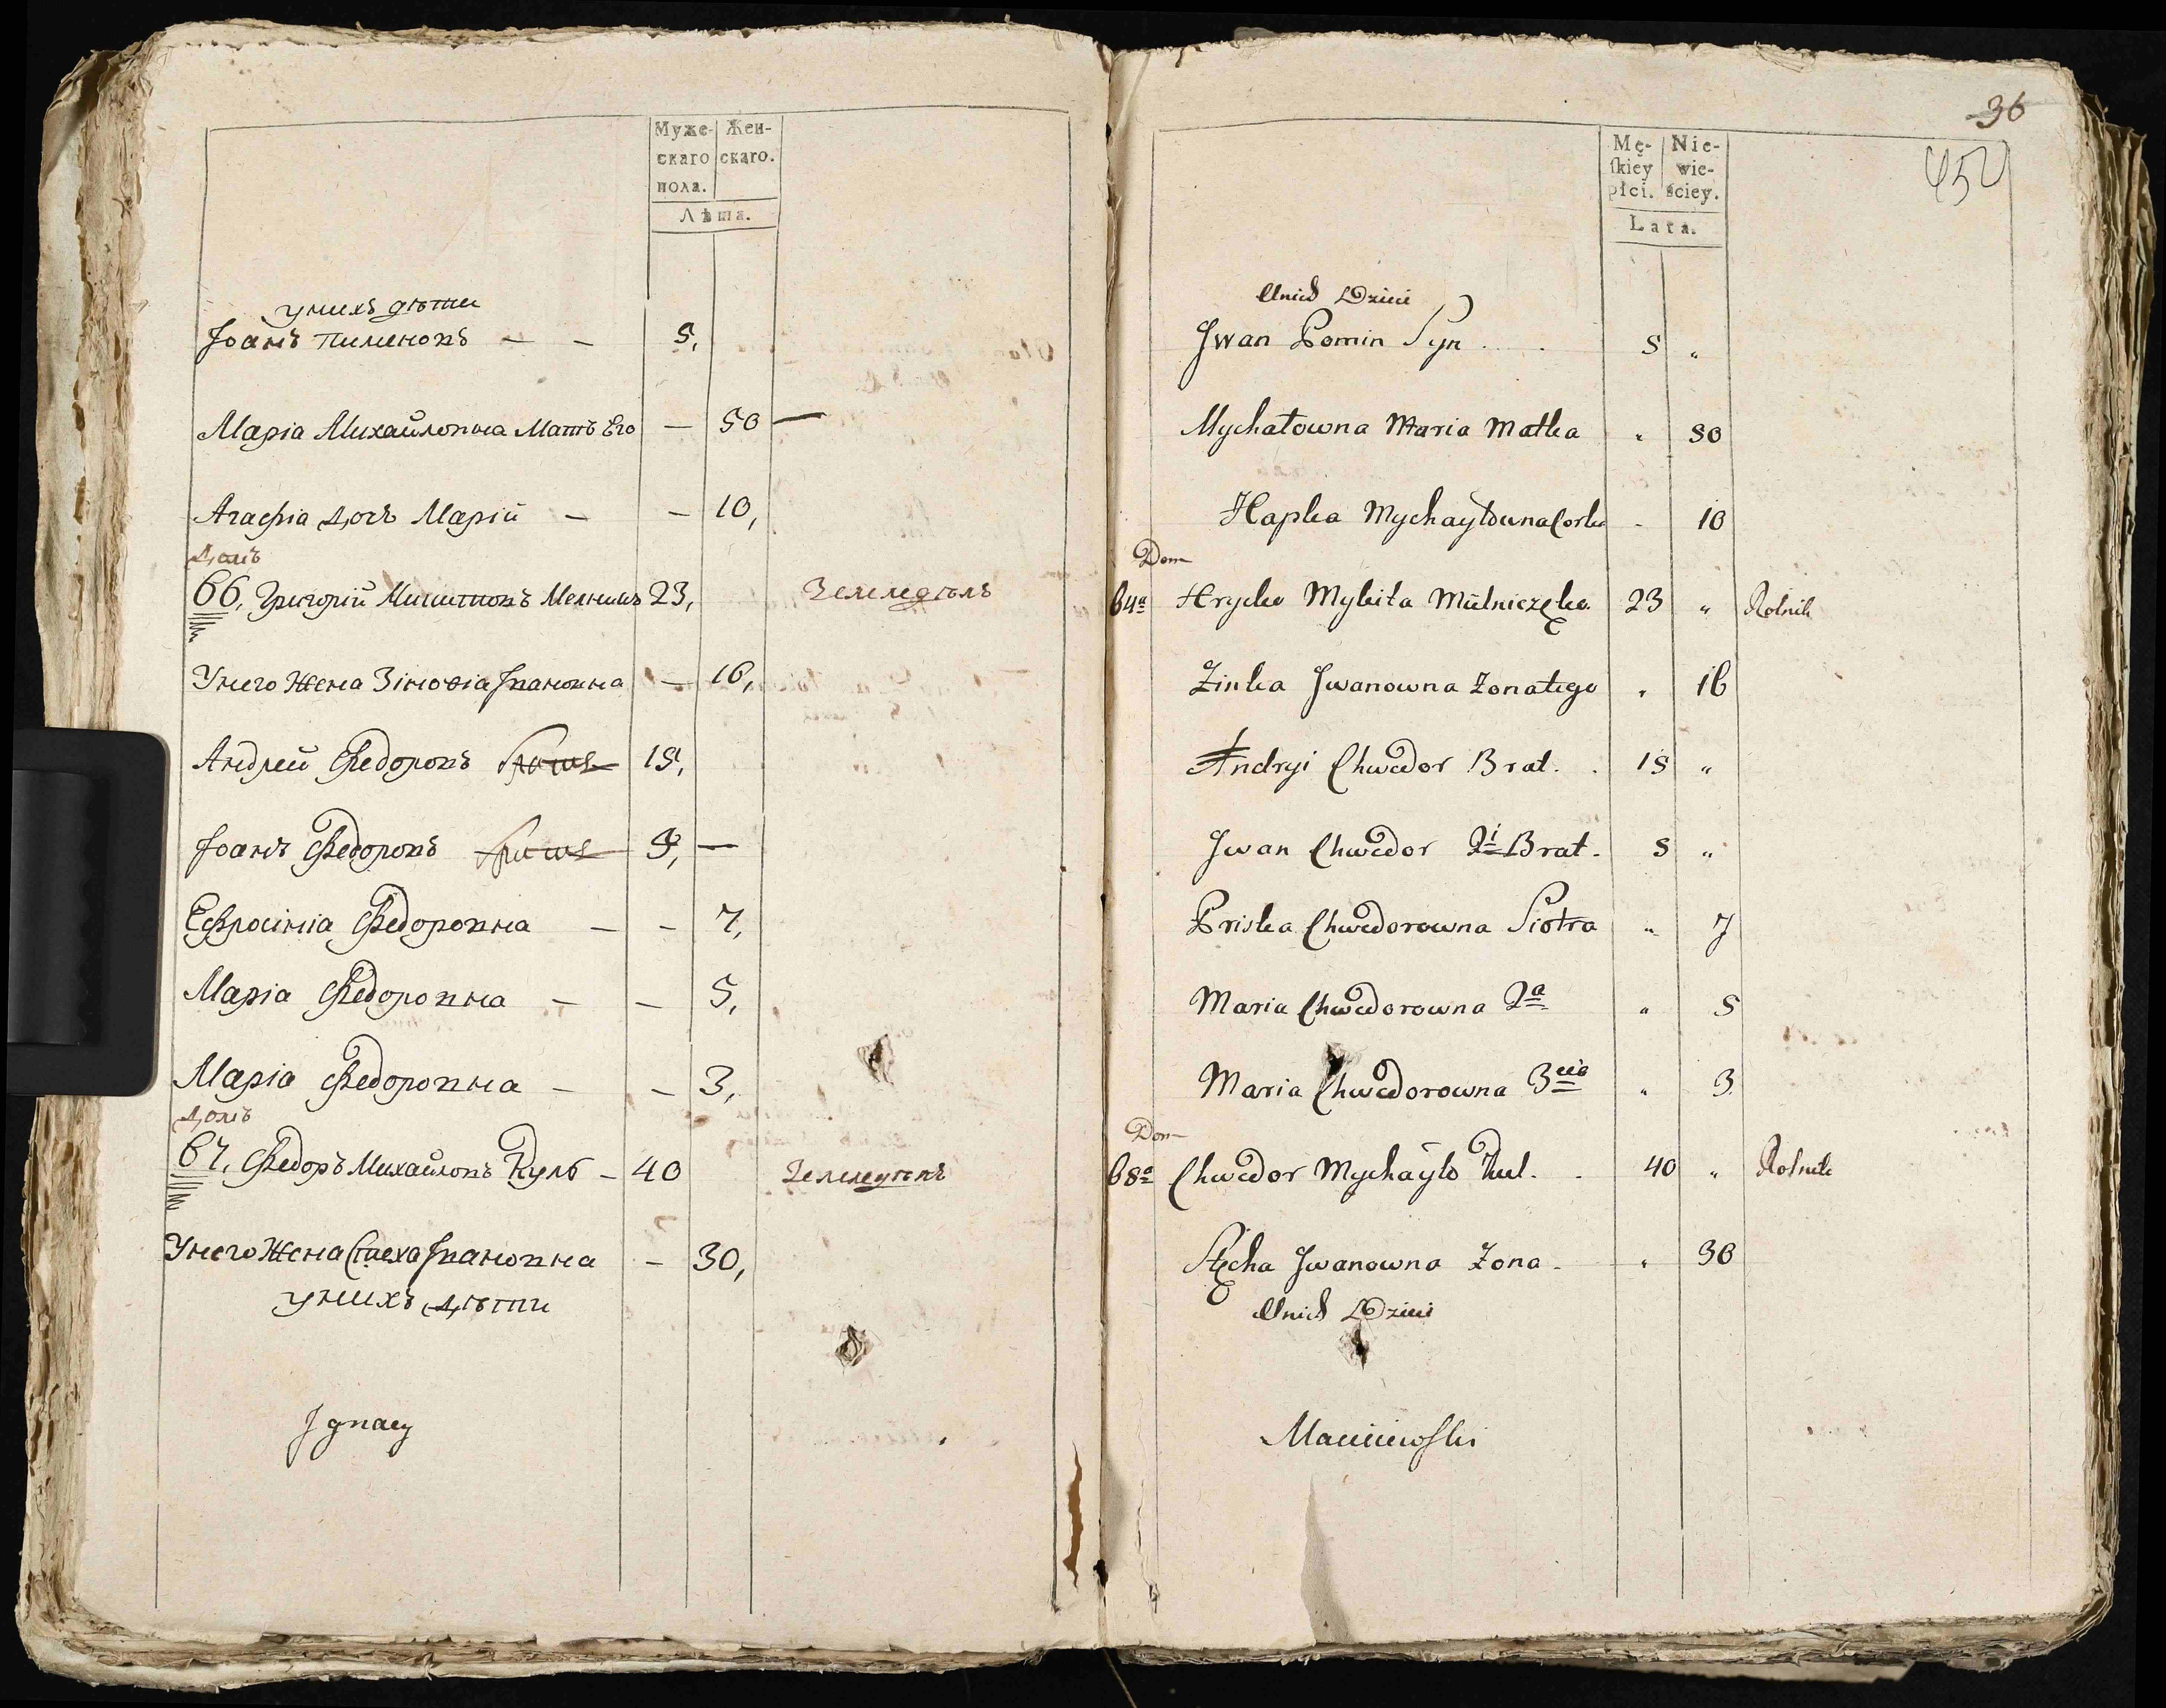 Муже- Жен-
скаго скаго.
пола.
Лѣта.
у нихъ дѣти
Іоанъ Пименовъ — — 5,
Маріа Михайловна Мать Его — 50 —
Агафіа дочь Марій — — 10,
домъ
66, Григорій Микитовъ Мелникъ 23, Земледѣль
У него Жена Зіновіа Івановна — 16,
Андрей Федоровъ 15,
Іоанъ Федоровъ 5, —
Ефросиніа Федоровна — — 7,
Маріа Федоровна — — 5,
Маріа Федоровна — — 3,
домъ
67, Федоръ Михайловъ Куль — 40 Земледѣль
У него Жена Стеха Івановна — 30,
у нихъ дѣти
Ignacy
36
452
Mę- Nie-
ſkiey wie-
płci. ściey.
Lata.
Unich Dzieci
Jwan Pomin Syn . . 5 „
Mychałowna Maria Matka „ 50
Hapka Mychayłowna Corka - 10
Dom
64a Hrycko Mykita Mielniczęko 23 „ Rolnik
Zinka Jwanowna Zonatego „ 16
Andryi Chwedor Brat . . 15 „
Jwan Chwedor 2i Brat . 5 „
Priska Chwedorowna Siotra „ 7
Maria Chwedorowna 2a „ 5
Maria Chwedorowna 3cia „ 3
Dom
65a Chwedor Mychayło Kul . . 40 „ Rolnik
Stecha Jwanowna Zona - „ 30
Unich Dzieci
Macieiewſki